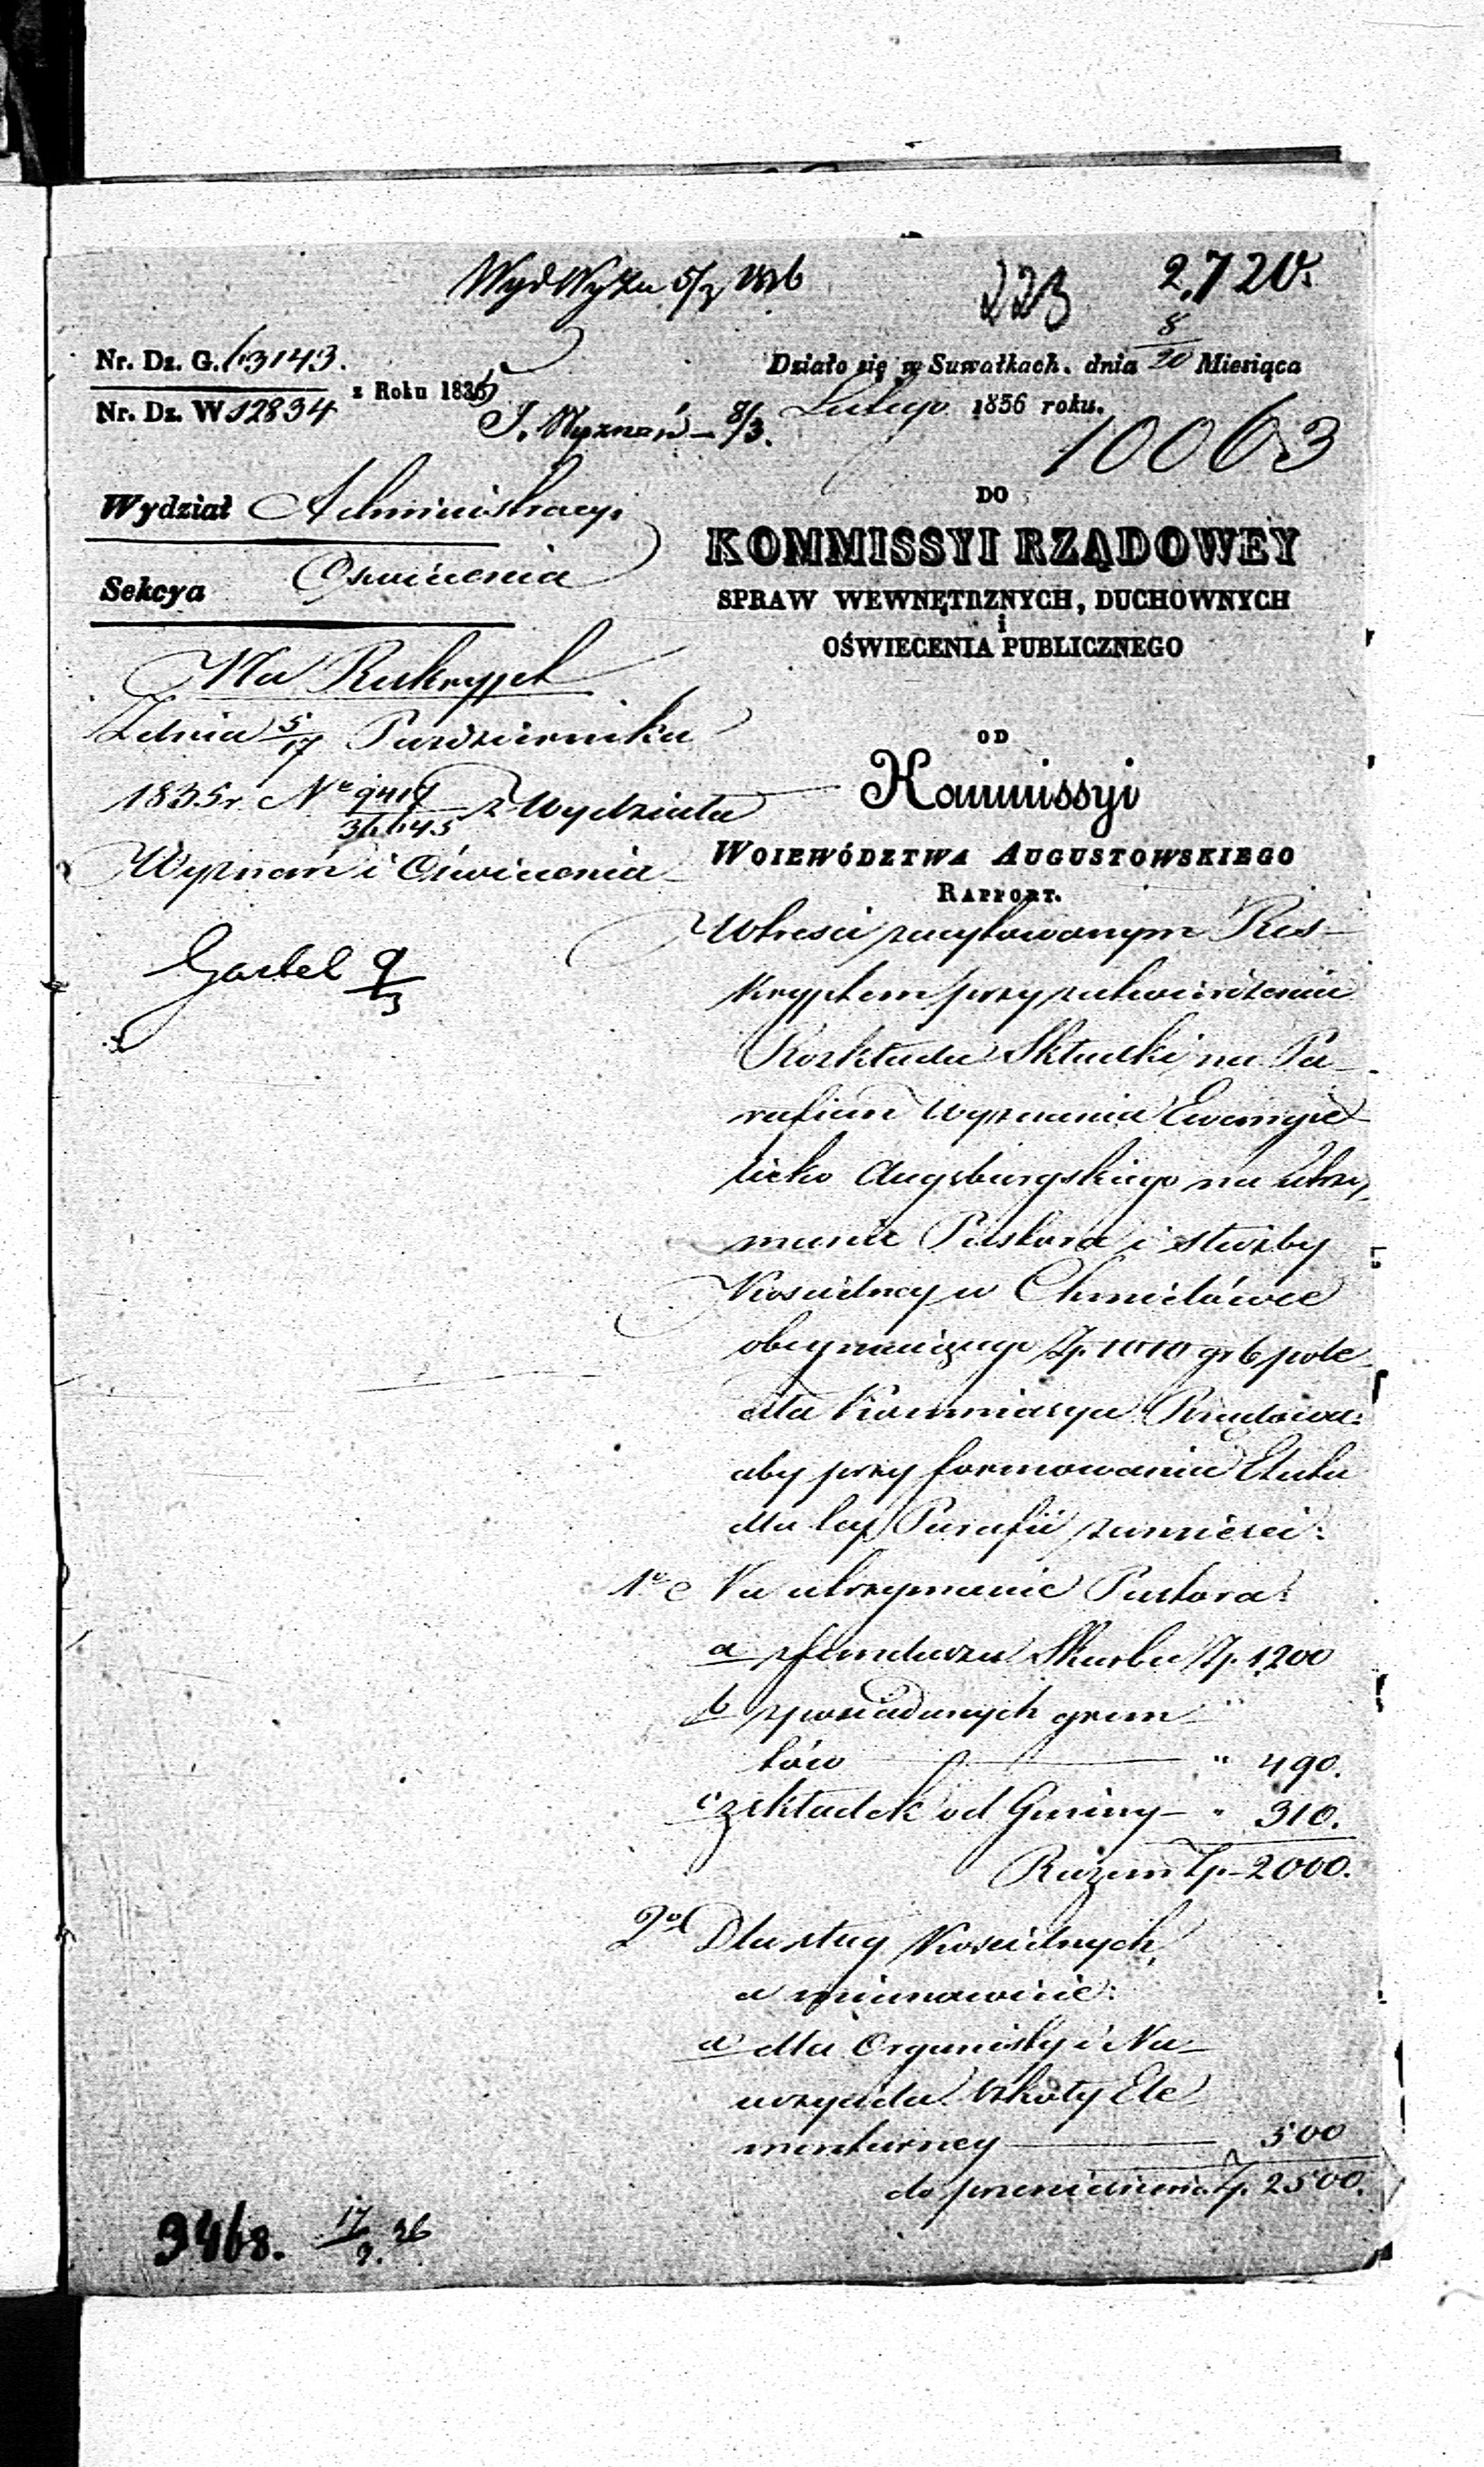 223
2,720.
Nr. Dz. G. 63143.
Nr. Dz. W 12834
z Roku 1835
Działo się w Suwałkach. dnia 8/20 Miesiąca
Lutego 1836 roku.
J. Wyznań – 8/3.
10063
Wydział Administracyi
Sekcya Oswiecenia
DO
KOMMISSYI RZĄDOWEY
SPRAW WEWNĘTRZNYCH, DUCHOWNYCH
i
OŚWIECENIA PUBLICZNEGO
Na Reskrypt
Z dnia 5/17 Pazdziernika
1835 r. No z Wydziału
Wyznań i Oświecenia
9/3
OD
Kommissyi
WOIEWÓDZTWA AUGUSTOWSKIEGO
RAPPORT.
W treści zacytowanym Res-
kryptem przy zatwierdzeniu
Rozkładu Składki na Pa-
rafian Wyznania Ewangie-
licko Augsburgskiego na utrzy-
manie Pastora i służby
Koscielney w Chmielówce
obeymuiącego Zp. 1010 gr 6 pole-
ciła Kommissya Rządowa:
aby przy formowaniu Etatu
dla tey Parafii zamieści:
1o Na utrzymanie Pastora:
a z funduszu Skarbu Zp. 1,200
b z posiadanych grun- "
tów " 490.
c z składek od Gminy – " 310.
Razem Zp. 2000.
2o Dla sług Koscielnych,
a mianowicie:
a dla Organisty i Na-
uczyciela Szkoły Ele-
mentarney 500
do przeniesienia Zp. 2500.
3468. 17/3. 36